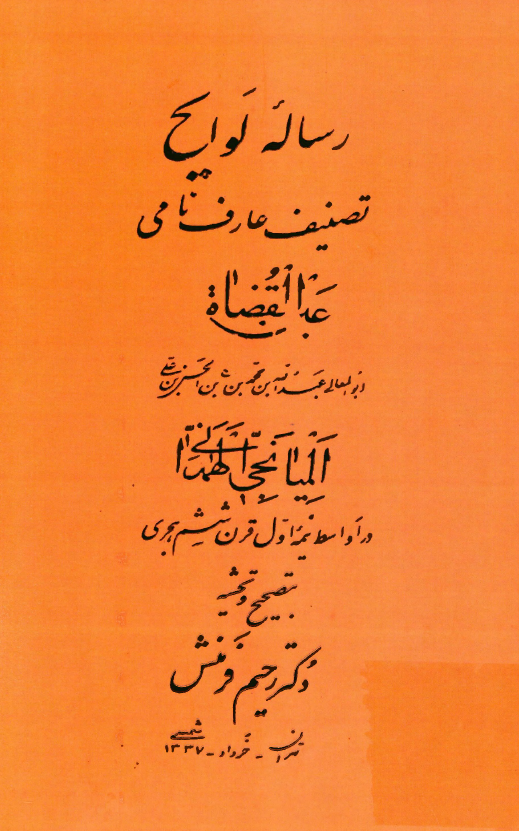 رسالهٔ لَوایح
تصنیف عارف نامی
عَینُ الْقُضاة
ابوالمعالی عَبدُ اللّه بن محمّد بن الحَسَن بن علی
اَلْمِیانَجِیّ الْهَمَدانیّ
در اواسط نیمهٔ اوّل قرن ششم هجری
بتصحیح و تحشیه
دکتر رحیم فرمنش
تهران - خرداد - ۱۳۳۷ شمسی